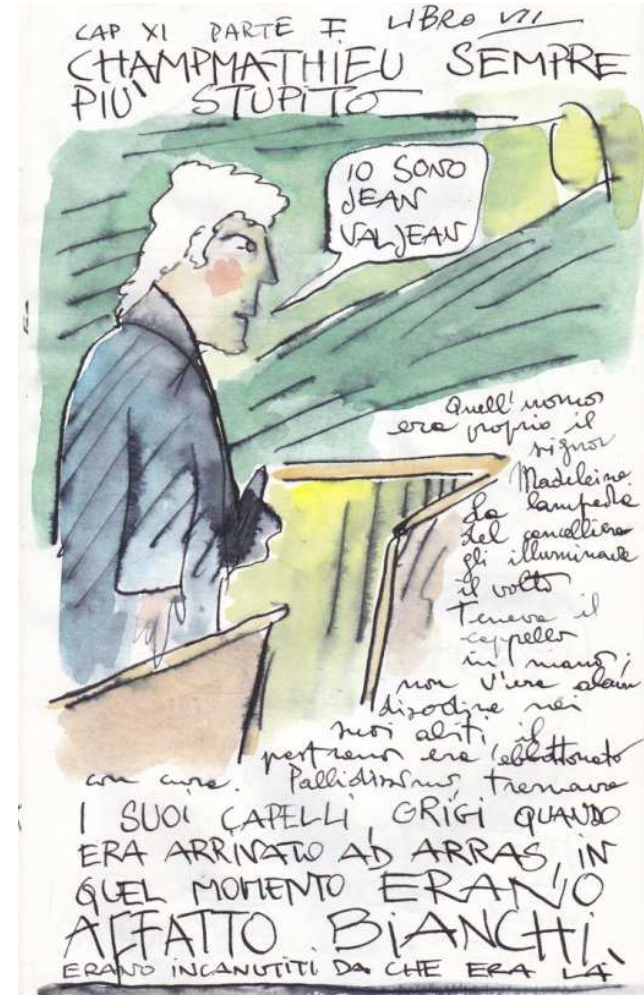 CAP XI PARTE I LIBRO VII
CHAMPMATHIEU SEMPRE
PIU' STUPITO
IO SONO
JEAN
VALJEAN
Quell'uomo
era proprio il
signor
Madeleine
La lampada
del cancelliere
gli illuminava
il volto
Teneva il
cappello
in mano;
non v'era alcun
disordine nei
suoi abiti il
pastrano era abbottonato
con cura. Pallidissimo, tremava
I SUOI CAPELLI, GRIGI QUANDO
ERA ARRIVATO AD ARRAS, IN
QUEL MOMENTO ERANO
AFFATTO BIANCHI,
ERANO INCANUTITI DA CHE ERA LÀ